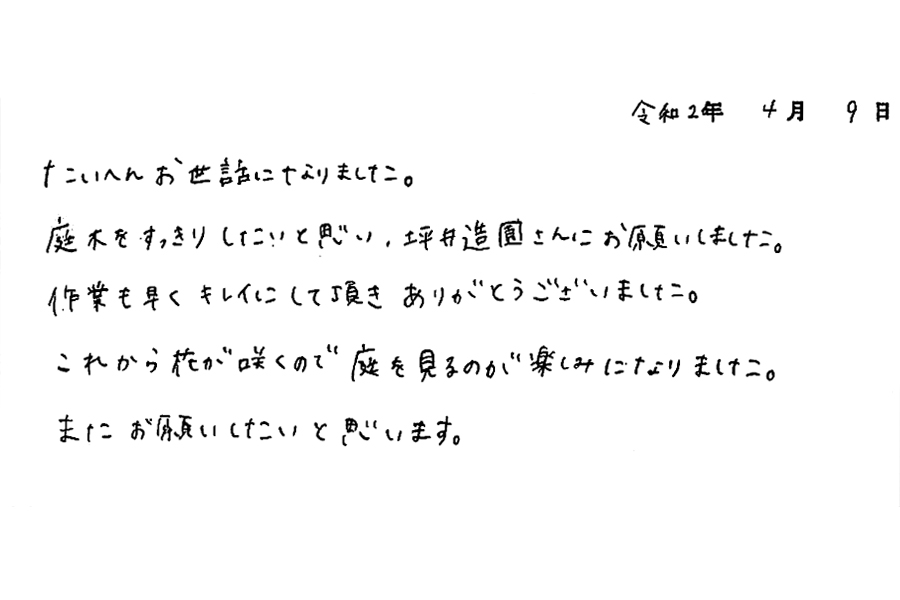 令和2年 4月 9日
たいへんお世話になりました。
庭木をすっきりしたいと思い、坪井造園さんにお願いしました。
作業も早くキレイにして頂きありがとうございました。
これから花が咲くので庭を見るのが楽しみになりました。
またお願いしたいと思います。